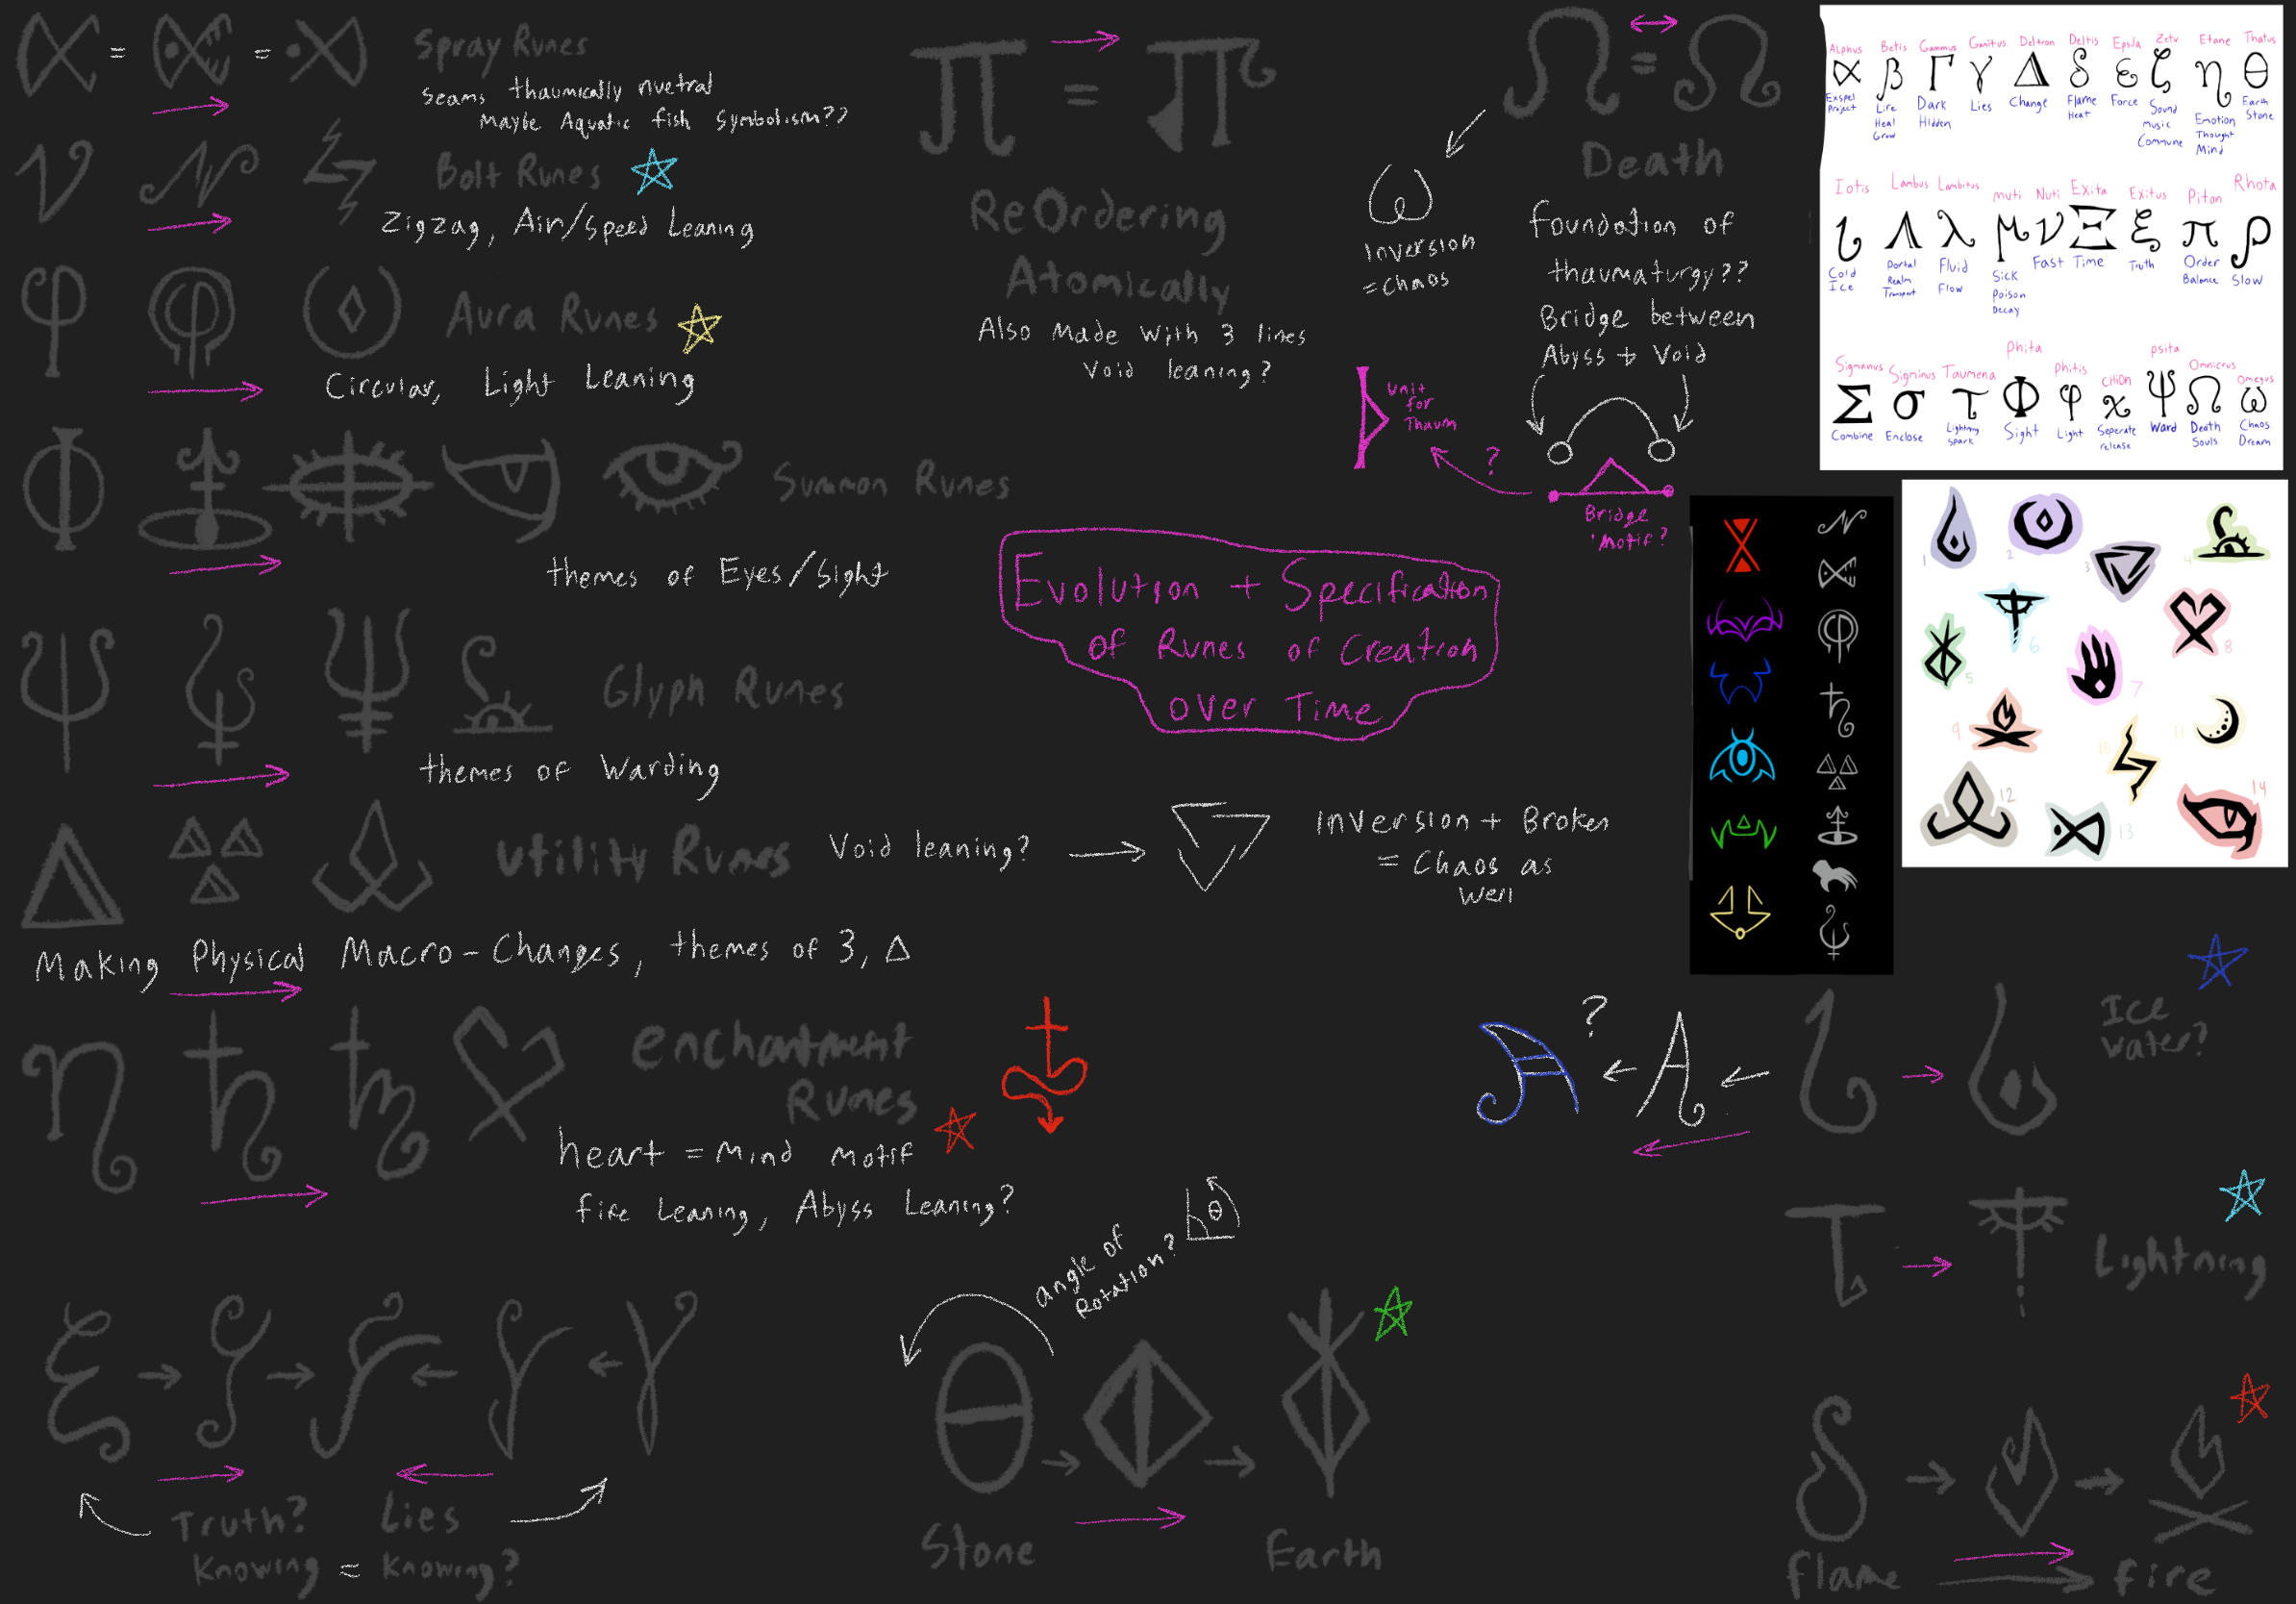 = =
Spray Runes
Seams thaumically nuetral
Maybe Aquatic fish symbolism??
Bolt Runes
Zigzag, Air/Speed Leaning
Aura Runes
Circular, Light Leaning
Summon Runes
themes of Eyes/Sight
Glyph Runes
themes of Warding
Utility Runes
Void leaning?
Inversion + Broken
= Chaos as
Well
Making Physical Macro-Changes, themes of 3, Δ
enchantment
Runes
heart = Mind motif
fire Leaning, Abyss Leaning?
Truth? Lies
Knowing = Knowing?
π =
ReOrdering
Atomically
Also Made With 3 lines
Void leaning?
Ω = Ω
Death
foundation of
thaumaturgy??
Bridge between
Abyss + Void
ω
Inversion
=Chaos
Unit
for
Thaum
?
Bridge
'Motif?
Evolution + Specification
of Runes of Creation
over Time
angle of
Rotation?
θ
Stone
Earth
?
Ice
Water?
Lightning
flame
fire
Alphus Betis Gammus Gamitus Deltron Deltis Epsila Zetu Etane Thatus
α β Γ γ Δ δ ε ζ η θ
Exspel Project
Life Heal Grow
Dark Hidden
Lies
Change
Flame Heat
Force
Sound Music Commune
Emotion Thought Mind
Earth Stone
Iotis Lambus Lambitus muti Nuti Exita Exitus Piton Rhota
ι Λ λ μ ν Ξ ξ π ρ
Cold Ice
Portal Realm Transport
Fluid Flow
Sick Poison Decay
Fast
Time
Truth
Order Balance
Slow
Sigmanus Sigminus Taumena Phita Phitis CHiON Psita Omnicrus Omegus
Σ σ τ Φ φ χ ψ Ω ω
Combine
Enclose
Lightning Spark
Sight
Light
Seperate release
Ward
Death Souls
Chaos Dream
1
2
3
4
5
6
7
8
9
10
11
12
13
14